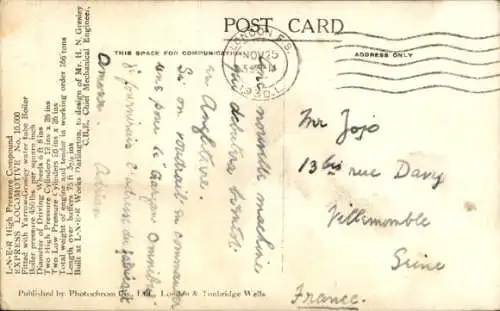 POST CARD
THIS SPACE FOR COMMUNICATION
ADDRESS ONLY
LONDON F.S.
NOV 25
1930
L·N·E·R High Pressure Compound
EXPRESS LOCOMOTIVE No. 10,000
Fitted with Yarrow-Gresley water tube Boiler
Boiler pressure 450 lbs. per square inch
Diameter of Driving Wheels 6 ft 8 ins
Two High Pressure Cylinders 12 ins x 26 ins
Two Low Pressure Cylinders 20 ins x 26 ins
Total weight of engine and tender in working order 166 tons
Length over buffers 75 ft
Built at L·N·E·R Works Darlington, to design of Mr. H. N. Gresley
C.B.E., Chief Mechanical Engineer,
Une nouvelle machine
qui débutera bientôt
en Angleterre.
Si on voudrait en commander
une pour le Garçon Omnibus
je fournirais l'adresse du fabricant
Mr Jojo
13 bis rue Davy
Villemomble
Seine
France
Published by Photochrom Co., Ltd., London & Tunbridge Wells